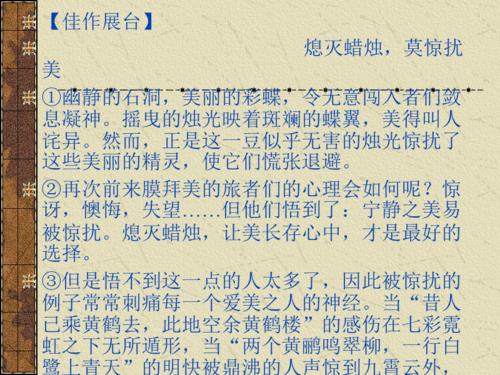 【佳作展台】
熄灭蜡烛，莫惊扰
美
①幽静的石洞，美丽的彩蝶，令无意闯入者们敛
息凝神。摇曳的烛光映着斑斓的蝶翼，美得叫人
诧异。然而，正是这一豆似乎无害的烛光惊扰了
这些美丽的精灵，使它们慌张退避。
②再次前来膜拜美的旅者们的心理会如何呢？惊
讶，懊悔，失望……但他们悟到了：宁静之美易
被惊扰。熄灭蜡烛，让美长存心中，才是最好的
选择。
③但是悟不到这一点的人太多了，因此被惊扰的
例子常常刺痛每一个爱美之人的神经。当“昔人
已乘黄鹤去，此地空余黄鹤楼”的感伤在七彩霓
虹之下无所遁形，当“两个黄鹂鸣翠柳，一行白
鹭上青天”的明快被鼎沸的人声惊到九霄云外，